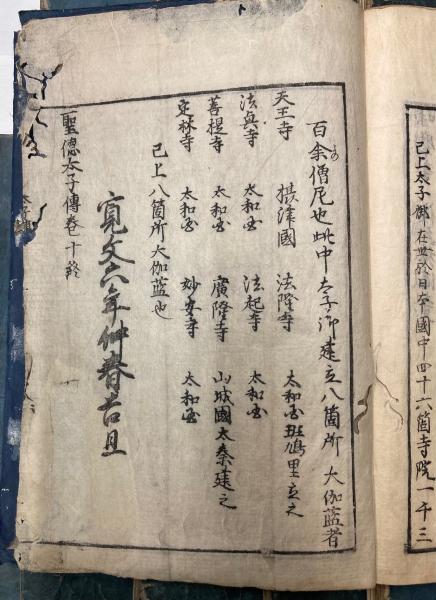 已上太子御在世於日本國中四十六箇寺院一千三
百余僧尼也此中太子御建立八箇所大伽藍者
天王寺 摂津國 法隆寺 太和国斑鳩里立之
法興寺 太和国 法起寺 太和国
菩提寺 太和国 廣隆寺 山城國太秦建之
定林寺 太和国 妙安寺 太和国
已上八箇所大伽藍也
寛文六年仲春吉旦
聖徳太子傳卷十終